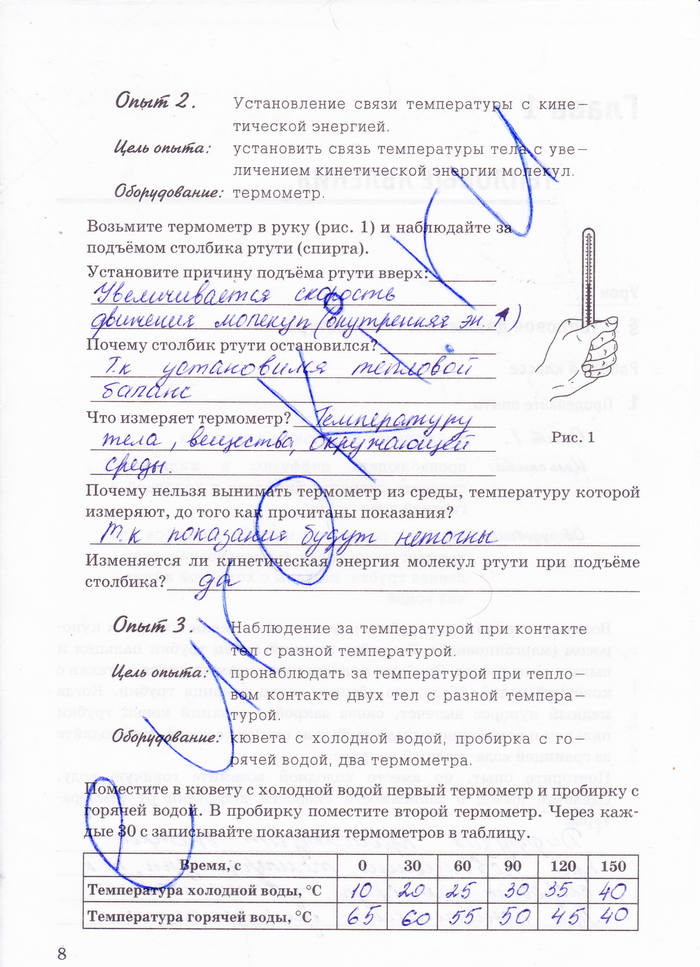 Опыт 2. Установление связи температуры с кине-
тической энергией.
Цель опыта: установить связь температуры тела с уве-
личением кинетической энергии молекул.
Оборудование: термометр.
Возьмите термометр в руку (рис. 1) и наблюдайте за
подъёмом столбика ртути (спирта).
Установите причину подъёма ртути вверх:
Увеличивается скорость
движения молекул (внутренняя эн. ↑)
Почему столбик ртути остановился?
Т.к установился тепловой
баланс
Что измеряет термометр? Температуру
тела, вещества, окружающей
среды.
Рис. 1
Почему нельзя вынимать термометр из среды, температуру которой
измеряют, до того как прочитаны показания?
Т.к показание будут неточны
Изменяется ли кинетическая энергия молекул ртути при подъёме
столбика? да
Опыт 3. Наблюдение за температурой при контакте
тел с разной температурой.
Цель опыта: пронаблюдать за температурой при тепло-
вом контакте двух тел с разной темпера-
турой.
Оборудование: кювета с холодной водой, пробирка с го-
рячей водой, два термометра.
Поместите в кювету с холодной водой первый термометр и пробирку с
горячей водой. В пробирку поместите второй термометр. Через каж-
дые 30 с записывайте показания термометров в таблицу.
Время, с 0 30 60 90 120 150
Температура холодной воды, °С 10 20 25 30 35 40
Температура горячей воды, °С 65 60 55 50 45 40
8